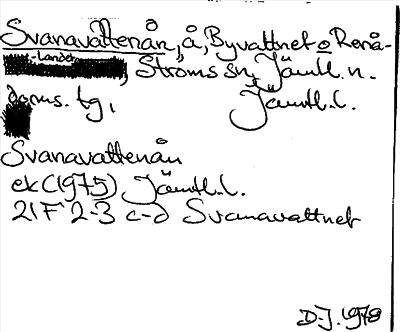 Svanavattenån, å, Byvattnet o Renå-
-landet, Ströms sn, Jämtl. n.
doms. tg, Jämtl. l.
Svanavattenån
ek (1975) Jämtl. l.
21F 2-3 c-d Svanavattnet
D-J. 1978